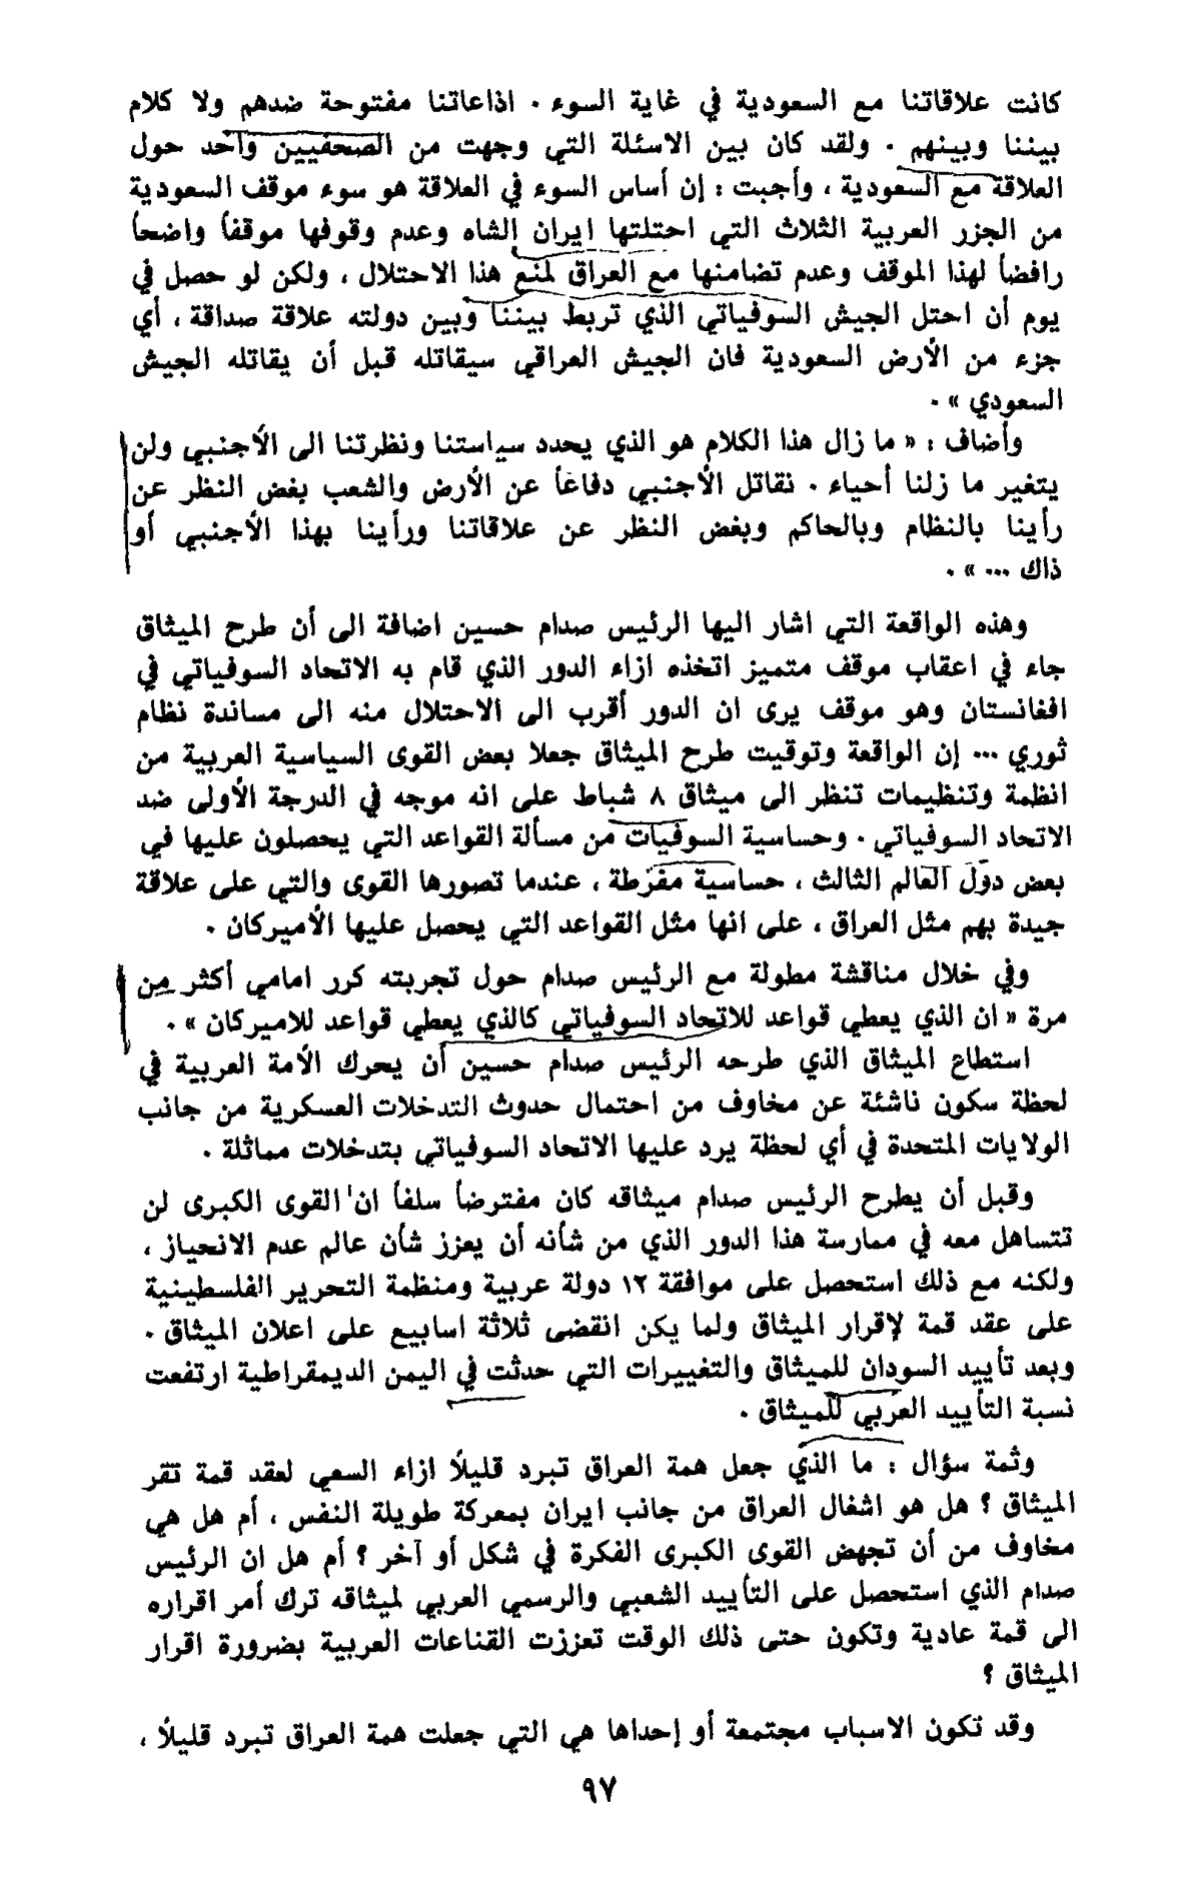 كانت علاقاتنا مع السعودية في غاية السوء . اذاعاتنا مفتوحة ضدهم ولا كلام
بيننا وبينهم . ولقد كان بين الاسئلة التي وجهت من الصحفيين واحد حول
العلاقة مع السعودية ، وأجبت : إن أساس السوء في العلاقة هو سوء موقف السعودية
من الجزر العربية الثلاث التي احتلتها ايران الشاه وعدم وقوفها موقفاً واضحاً
رافضاً لهذا الموقف وعدم تضامنها مع العراق لمنع هذا الاحتلال ، ولكن لو حصل في
يوم أن احتل الجيش السوفياتي الذي تربط بيننا وبين دولته علاقة صداقة ، أي
جزء من الأرض السعودية فان الجيش العراقي سيقاتله قبل أن يقاتله الجيش
السعودي » .
وأضاف : « ما زال هذا الكلام هو الذي يحدد سياستنا ونظرتنا الى الأجنبي ولن
يتغير ما زلنا أحياء . نقاتل الأجنبي دفاعاً عن الأرض والشعب بغض النظر عن
رأينا بالنظام وبالحاكم وبغض النظر عن علاقاتنا ورأينا بهذا الأجنبي أو
ذاك ... » .
وهذه الواقعة التي اشار اليها الرئيس صدام حسين اضافة الى أن طرح الميثاق
جاء في اعقاب موقف متميز اتخذه ازاء الدور الذي قام به الاتحاد السوفياتي في
افغانستان وهو موقف يرى ان الدور أقرب الى الاحتلال منه الى مساندة نظام
ثوري ... إن الواقعة وتوقيت طرح الميثاق جعلا بعض القوى السياسية العربية من
انظمة وتنظيمات تنظر الى ميثاق ٨ شباط على انه موجه في الدرجة الأولى ضد
الاتحاد السوفياتي . وحساسية السوفيات من مسألة القواعد التي يحصلون عليها في
بعض دول العالم الثالث ، حساسية مفرطة ، عندما تصورها القوى والتي على علاقة
جيدة بهم مثل العراق ، على انها مثل القواعد التي يحصل عليها الأميركان .
وفي خلال مناقشة مطولة مع الرئيس صدام حول تجربته كرر امامي أكثر من
مرة « ان الذي يعطي قواعد للاتحاد السوفياتي كالذي يعطي قواعد للاميركان » .
استطاع الميثاق الذي طرحه الرئيس صدام حسين أن يحرك الأمة العربية في
لحظة سكون ناشئة عن مخاوف من احتمال حدوث التدخلات العسكرية من جانب
الولايات المتحدة في أي لحظة يرد عليها الاتحاد السوفياتي بتدخلات مماثلة .
وقبل أن يطرح الرئيس صدام ميثاقه كان مفترضاً سلفاً ان القوى الكبرى لن
تتساهل معه في ممارسة هذا الدور الذي من شأنه أن يعزز شأن عالم عدم الانحياز ،
ولكنه مع ذلك استحصل على موافقة ١٢ دولة عربية ومنظمة التحرير الفلسطينية
على عقد قمة لإقرار الميثاق ولما يكن انقضى ثلاثة اسابيع على اعلان الميثاق .
وبعد تأييد السودان للميثاق والتغييرات التي حدثت في اليمن الديمقراطية ارتفعت
نسبة التأييد العربي للميثاق .
وثمة سؤال : ما الذي جعل همة العراق تبرد قليلاً ازاء السعي لعقد قمة تقر
الميثاق ؟ هل هو اشغال العراق من جانب ايران بمعركة طويلة النفس ، أم هل هي
مخاوف من أن تجهض القوى الكبرى الفكرة في شكل أو آخر ؟ أم هل ان الرئيس
صدام الذي استحصل على التأييد الشعبي والرسمي العربي لميثاقه ترك أمر اقراره
الى قمة عادية وتكون حتى ذلك الوقت تعززت القناعات العربية بضرورة اقرار
الميثاق ؟
وقد تكون الاسباب مجتمعة أو إحداها هي التي جعلت همة العراق تبرد قليلاً ،
٩٧